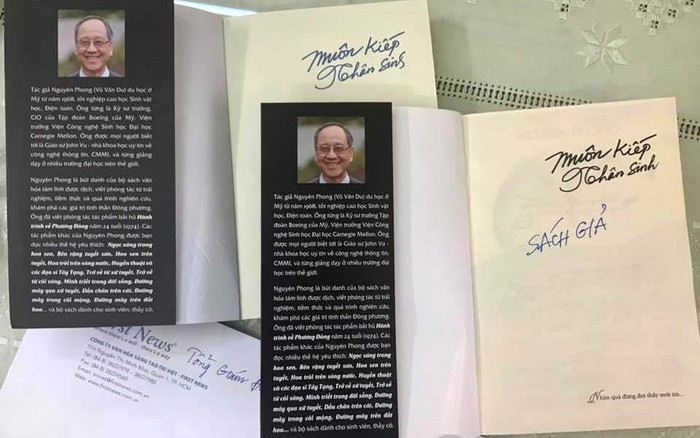 Tác giả Nguyên Phong (Vũ Văn Du) du học ở
Mỹ từ năm 1968, tốt nghiệp cao học Sinh vật
học, Điện toán. Ông từng là Kỹ sư trưởng,
CIO của Tập đoàn Boeing của Mỹ, Viện
trưởng Viện Công nghệ Sinh học Đại học
Carnegie Mellon. Ông được mọi người biết
tới là Giáo sư John Vu - nhà khoa học uy tín về
công nghệ thông tin, CMMI, và từng giảng
dạy ở nhiều trường đại học trên thế giới.
Nguyên Phong là bút danh của bộ sách văn
hóa tâm linh được dịch, viết phóng tác từ trải
nghiệm, tiềm thức và quá trình nghiên cứu,
khám phá các giá trị tinh thần Đông phương.
Ông đã viết phóng tác tác phẩm bất hủ Hành
trình về Phương Đông năm 24 tuổi (1974). Các
tác phẩm khác của Nguyên Phong được bạn
đọc nhiều thế hệ yêu thích: Ngọc sáng trong
hoa sen, Bên rặng tuyết sơn, Hoa sen trên
tuyết, Hoa trôi trên sóng nước, Huyền thuật và
các đạo sĩ Tây Tạng, Trở về từ xứ tuyết, Trở về
từ cõi sáng, Minh triết trong đời sống, Đường
mây qua xứ tuyết, Dấu chân trên cát, Đường
mây trong cõi mộng, Đường mây trên đất
hoa... và bộ sách dành cho sinh viên, thầy cô.
Muôn Kiếp
Nhân Sinh
First News®
CÔNG TY VĂN HÓA SÁNG TẠO TRÍ VIỆT - FIRST NEWS
Nguyễn Thị Minh Khai, Quận 1, TP. HCM
Tổng Giám
Tác giả Nguyên Phong (Vũ Văn Du) du học ở
Mỹ từ năm 1968, tốt nghiệp cao học Sinh vật
học, Điện toán. Ông từng là Kỹ sư trưởng Tập
đoàn Boeing của Mỹ, Viện trưởng Viện Công
nghệ Sinh học Đại học Carnegie Mellon. Ông
được mọi người biết tới là Giáo sư John Vu -
nhà khoa học uy tín về công nghệ thông tin,
CMMI, và từng giảng dạy ở nhiều trường đại
học trên thế giới.
Nguyên Phong là bút danh của bộ sách văn
hóa tâm linh được dịch, viết phóng tác từ trải
nghiệm, tiềm thức và quá trình nghiên cứu,
khám phá các giá trị tinh thần Đông phương.
Ông đã viết phóng tác tác phẩm bất hủ Hành
trình về Phương Đông năm 24 tuổi (1974). Các
tác phẩm khác của Nguyên Phong được bạn
đọc nhiều thế hệ yêu thích: Ngọc sáng trong
hoa sen, Bên rặng tuyết sơn, Hoa sen trên
tuyết, Hoa trôi trên sóng nước, Huyền thuật
và các đạo sĩ Tây Tạng, Trở về từ xứ tuyết, Trở về
từ cõi sáng, Minh triết trong đời sống, Đường
mây qua xứ tuyết, Dấu chân trên cát, Đường
mây trong cõi mộng, Đường mây trên đất
hoa... và bộ sách dành cho sinh viên, thầy cô.
Muôn Kiếp
Nhân Sinh
SÁCH GIẢ
Nhân quả đừng đợi thấy mới tin...